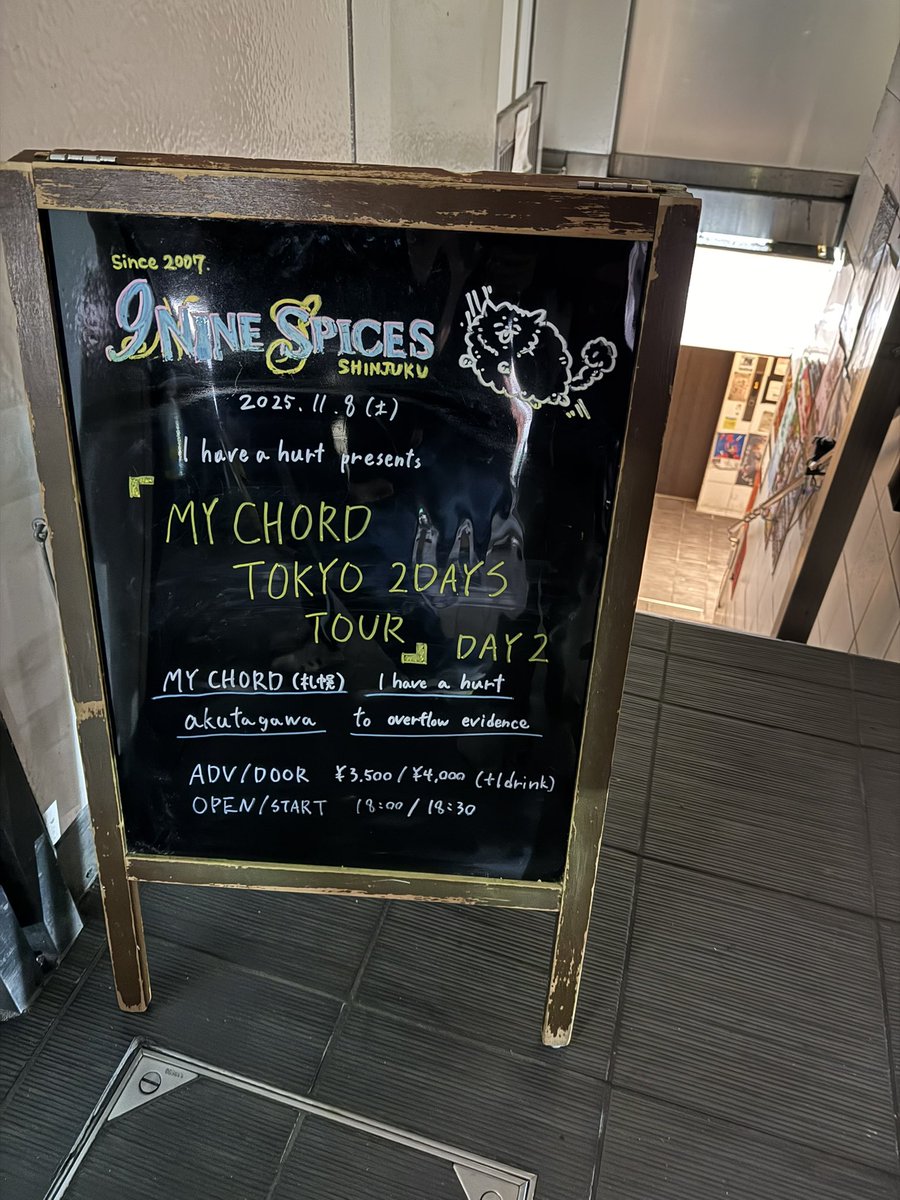 Since 2007.
9 NINE SPICES
SHINJUKU
2025.11.8(土)
I have a hurt presents
『MY CHORD
TOKYO 2DAYS
TOUR』 DAY2
MY CHORD(札幌) I have a hurt
akutagawa to overflow evidence
ADV/DOOR ¥3.500/¥4,000 (+1drink)
OPEN/START 18:00/18:30